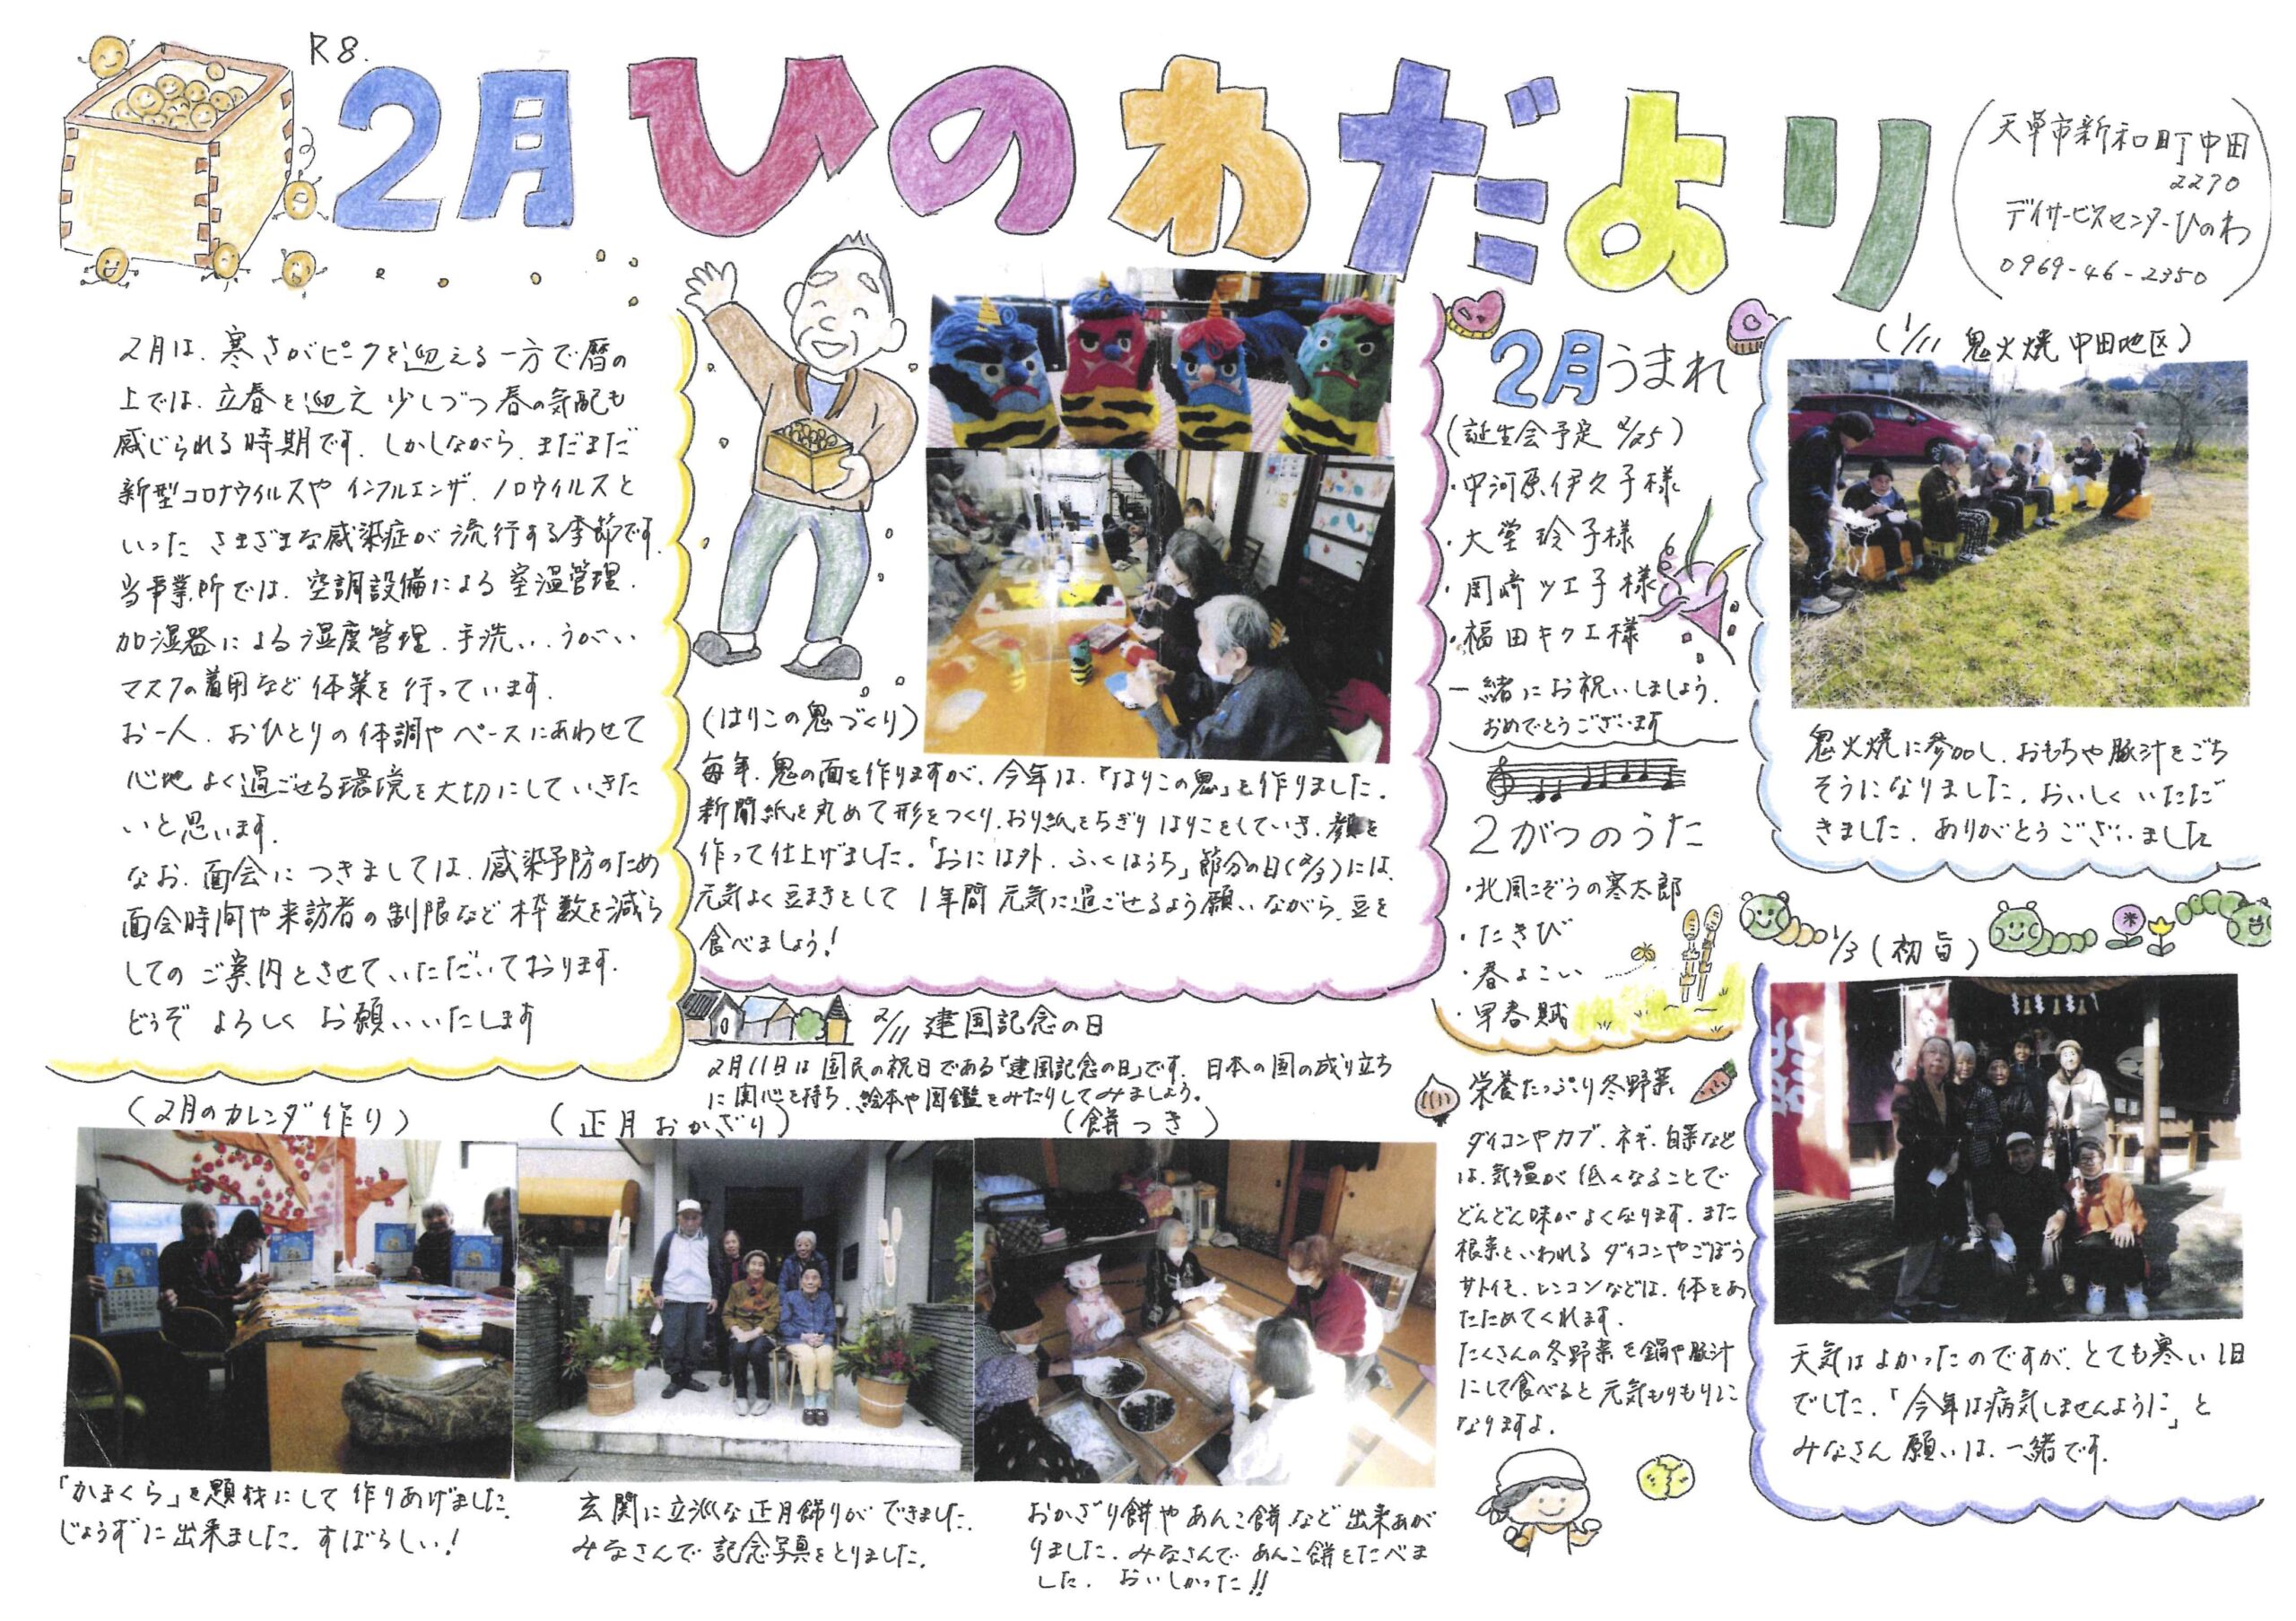 R8.
2月 ひのわだより
天草市新和町中田
2270
デイサービスセンターひのわ
0969-46-2350
2月は、寒さがピークを迎える一方で暦の
上では、立春を迎え少しづつ春の気配も
感じられる時期です。しかしながら、まだまだ
新型コロナウイルスや インフルエンザ、ノロウイルスと
いった さまざまな感染症が流行する季節です。
当事業所では、空調設備による室温管理、
加湿器による湿度管理、手洗い、うがい
マスクの着用など体策を行っています。
お一人、おひとりの体調やペースにあわせて
心地よく過ごせる環境を大切にしていきた
いと思います。
なお、面会につきましては、感染予防のため
面会時間や来訪者の制限など枠数を減ら
してのご案内とさせていただいております。
どうぞ よろしく お願いいたします
(はりこの鬼づくり)
毎年、鬼の面を作りますが、今年は、「はりこの鬼」を作りました。
新聞紙を丸めて形をつくり、おり紙をちぎりはりこをしていき、顔を
作って仕上げました。「おには外、ふくはうち」節分の日(2/3)には、
元気よく豆まきをして 1年間 元気に過ごせるよう願いながら、豆を
食べましょう!
2/11 建国記念の日
2月11日は国民の祝日である「建国記念の日」です。日本の国の成り立ち
に関心を持ち、絵本や図鑑をみたりしてみましょう。
2月うまれ
(誕生会予定 2/25)
・中河原伊久子様
・大堂玲子様
・岡崎ツエ子様
・福田キクエ様
一緒にお祝いしましょう。
おめでとうございます
2がつのうた
・北風こぞうの寒太郎
・たきび
・春よこい
・早春賦
栄養たっぷり冬野菜
ダイコンやカブ、ネギ、白菜など
は、気温が低くなることで
どんどん味がよくなります。また
根菜といわれるダイコンやごぼう
サトイモ、レンコンなどは、体をあ
たためてくれます。
たくさんの冬野菜を鍋や豚汁
にして食べると元気もりもりに
なりますよ。
(1/11 鬼火焼 中田地区)
鬼火焼に参加し、おもちや豚汁をごち
そうになりました。おいしくいただ
きました。ありがとうございました
1/3(初旨)
天気はよかったのですが、とても寒い1日
でした。「今年は病気しませんように」と
みなさん願いは、一緒です。
(2月のカレンダ作り)
「かまくら」を題材にして作りあげました。
じょうずに出来ました。すばらしい!
(正月おかざり)
玄関に立派な正月飾りができました。
みなさんで記念写真をとりました。
(餅つき)
おかざり餅やあんこ餅など出来あが
りました。みなさんで あんこ餅をたべま
した。おいしかった!!